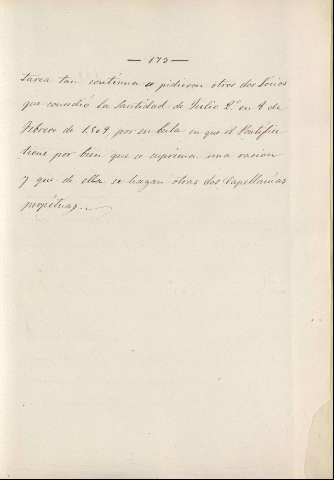 — 175 —
tarea tan continua se pidieron otros dos Socios
que concedió la Santidad de Julio 2º en 9 de
Febrero de 1509 por su bula en que el Pontífice
tiene por bien que se suprima una racion
y que de ella se hagan otras dos Capellanías
perpetuas.